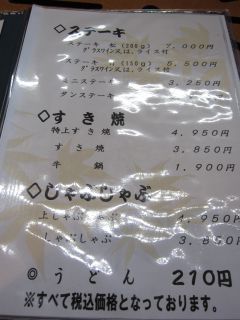 ◇ステーキ
ステーキ 松 (200g) 7,000円
グラスワイン又は、ライス付
ステーキ (150g) 5,500円
グラスワイン又は、ライス付
ミニステーキ 3,250円
タンステーキ
◇すき焼
特上すき焼 4,950円
すき焼 3,850円
牛鍋 1,900円
◇しゃぶしゃぶ
上しゃぶしゃぶ 4,950円
しゃぶしゃぶ 3,850円
◎うどん 210円
※すべて税込価格となっております。